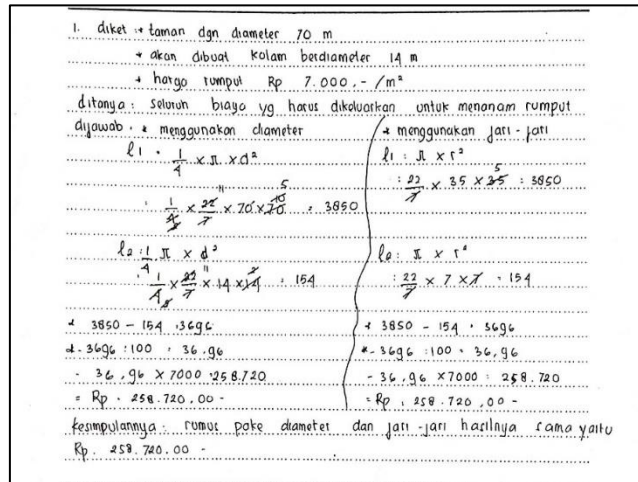 1. diket : * taman dgn diameter 70 m
* akan dibuat kolam berdiameter 14 m
* harga rumput Rp 7.000,- /m²
ditanya : seluruh biaya yg harus dikeluarkan untuk menanam rumput
dijawab : * menggunakan diameter
l1 = 1/4 × π × d²
= 1/4 × 22/7 × 70 × 70 = 3850
l2 : 1/4 π × d²
= 1/4 × 22/7 × 14 × 14 = 154
* 3850 - 154 = 3696
*- 3696 : 100 = 36,96
- 36,96 × 7000 = 258.720
= Rp . 258.720,00 -
* menggunakan jari - jari
l1 : π × r²
: 22/7 × 35 × 35 : 3850
l2 : π × r²
: 22/7 × 7 × 7 = 154
* 3850 - 154 = 3696
*- 3696 : 100 = 36,96
- 36,96 × 7000 : 258.720
= Rp . 258.720,00 -
kesimpulannya : rumus pake diameter dan jari - jari hasilnya sama yaitu
Rp. 258.720.00 -